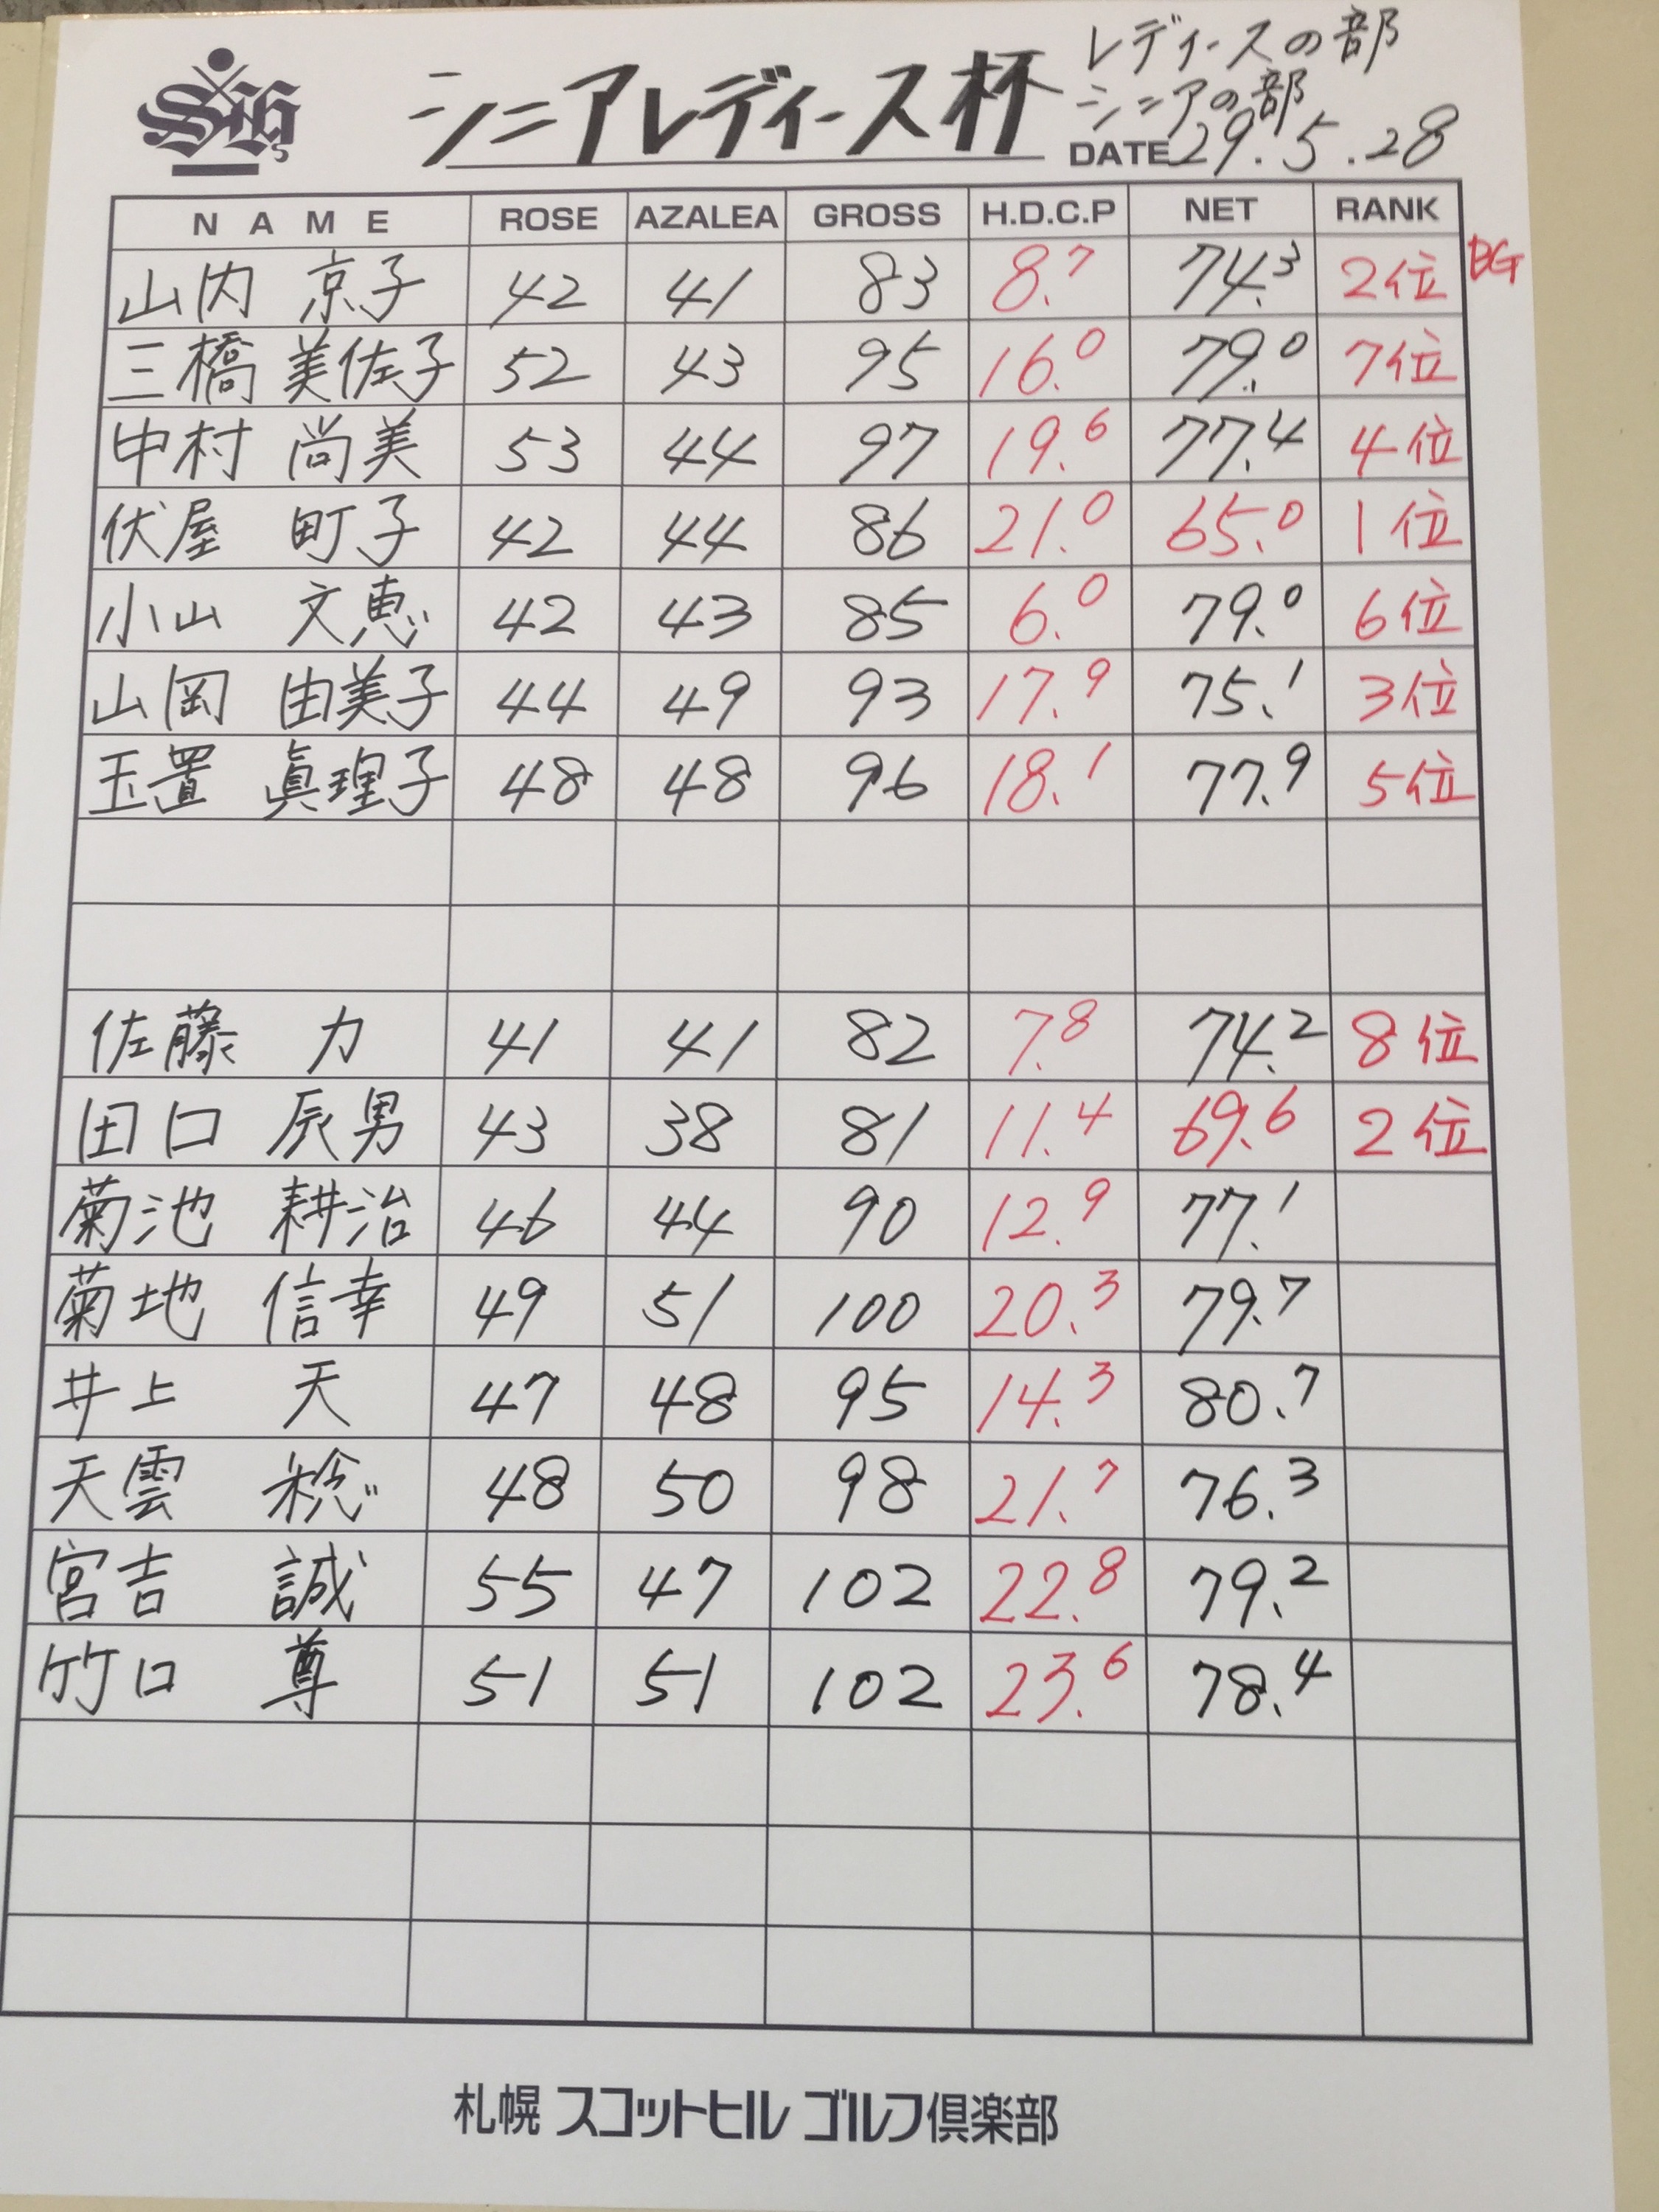 シニアレディース杯
レディースの部
シニアの部
DATE 29.5.28
NAME ROSE AZALEA GROSS H.D.C.P NET RANK
山内 京子 42 41 83 8.7 74.3 2位 BG
三橋 美佐子 52 43 95 16.0 79.0 7位
中村 尚美 53 44 97 19.6 77.4 4位
伏屋 町子 42 44 86 21.0 65.0 1位
小山 文恵 42 43 85 6.0 79.0 6位
山岡 由美子 44 49 93 17.9 75.1 3位
玉置 眞理子 48 48 96 18.1 77.9 5位
佐藤 力 41 41 82 7.8 74.2 8位
田口 辰男 43 38 81 11.4 69.6 2位
菊池 耕治 46 44 90 12.9 77.1
菊地 信幸 49 51 100 20.3 79.7
井上 天 47 48 95 14.3 80.7
天雲 稔 48 50 98 21.7 76.3
宮吉 誠 55 47 102 22.8 79.2
竹口 尊 51 51 102 23.6 78.4
札幌 スコットヒル ゴルフ倶楽部